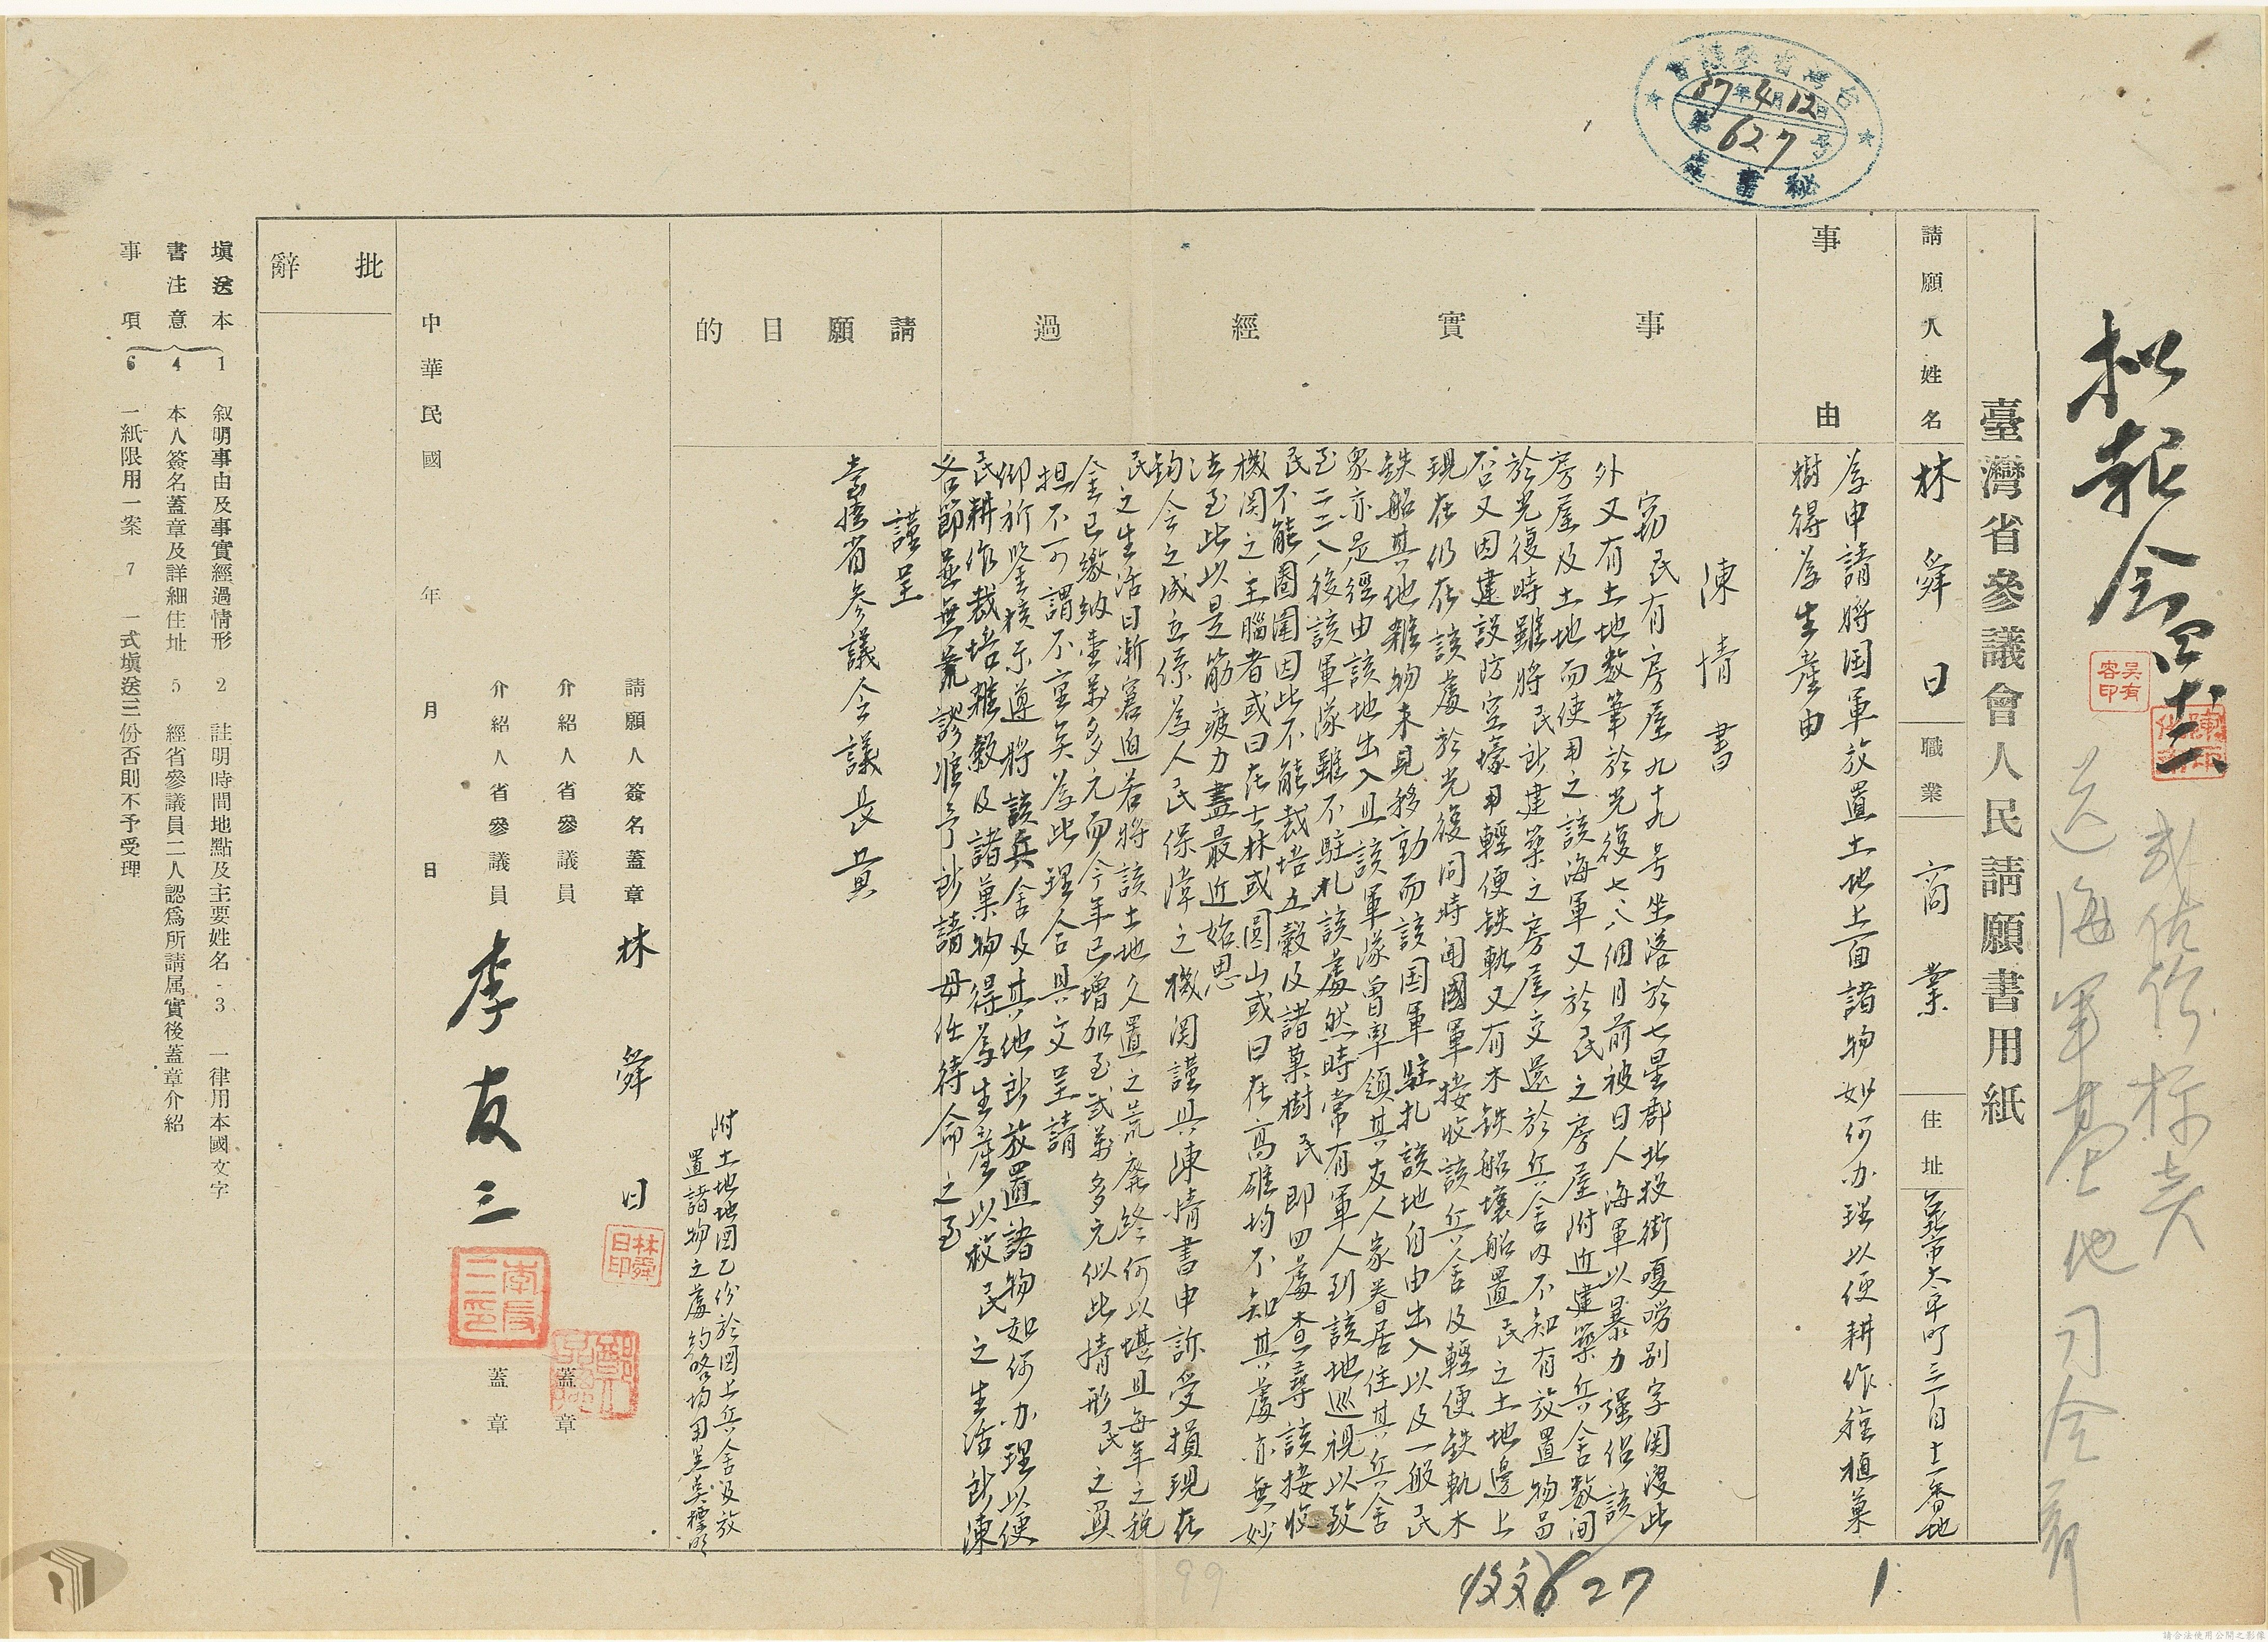 台灣省參議會
37年4月12日
第627号
秘書處
擬提會
吳有容印
或佔作標考
送海軍基地司令部
臺灣省參議會人民請願書用紙
請願人姓名 林舜日 職業 商業 住址 基市大平町三丁目十一番地
事由
為申請將国軍放置土地上面諸物如何办理以便耕作種植菓
樹得為生產由
事實經過
陳情書
竊民有房屋九十九号坐落於七星郡北投街嗄嘮别字関渡此
外又有土地数筆於光復七、八個月前被日人海軍以暴力强佔該
房屋及土地而使用之該海軍又於民之房屋附近建築兵舍数间
於光復時雖將民所建築之房屋交還於兵舍内不知有放置物品
否又因建設防空壕用輕便鉄軌又有木鉄船壞船置民之土地邊上
現在仍在該處於光復同時闻國軍接收該兵舍及輕便鉄軌木
鉄船其他雜物未見移動而該国軍駐扎該地自由出入以及一般民
衆亦是經由該地出入且該軍隊曾率領其友人家眷居住其兵舍
至二二八後該軍隊雖不駐札該處然時常有軍人到該地巡視以致
民不能圈圍因此不能栽培五穀及諸菓樹民即四處查尋該接收
機関之主腦者或曰在士林或圓山或曰在高雄均不知其處亦無妙
法至此以是筋疲力盡最近始思
鈞會之成立係為人民保障之機関謹具陳情書申訴受損現在
民之生活日漸窘迫若將該土地久置之荒廢終何以堪且每年之税
金已繳納壹萬多元而今年已增加至弍萬多元似此情形民之負
担不可謂不重矣為此理合具文呈請
仰祈鑒核示遵將該兵舍及其他所放置諸物如何办理以便
民耕作栽培雜穀及諸菓物得為生產以救民之生活所陳
各節並無荒謬准予所請毋任待命之至
請願目的
謹呈
臺灣省参議会議長黃
附土地地図乙份於図上兵舍及放
置諸物之處約略均用並英標明
請願人簽名蓋章 林舜日
林舜日印
介紹人省參議員 蓋章
介紹人省參議員 李友三 蓋章
李友三印
中華民國 年 月 日
批辭
填送本書注意事項
1 叙明事由及事實經過情形 2 註明時間地點及主要姓名 3 一律用本國文字
4 本人簽名蓋章及詳細住址 5 經省參議員二人認爲所請属實後蓋章介紹
6 一紙限用一案 7 一式填送三份否則不予受理
1
收文627
99
請合法使用公開之影像